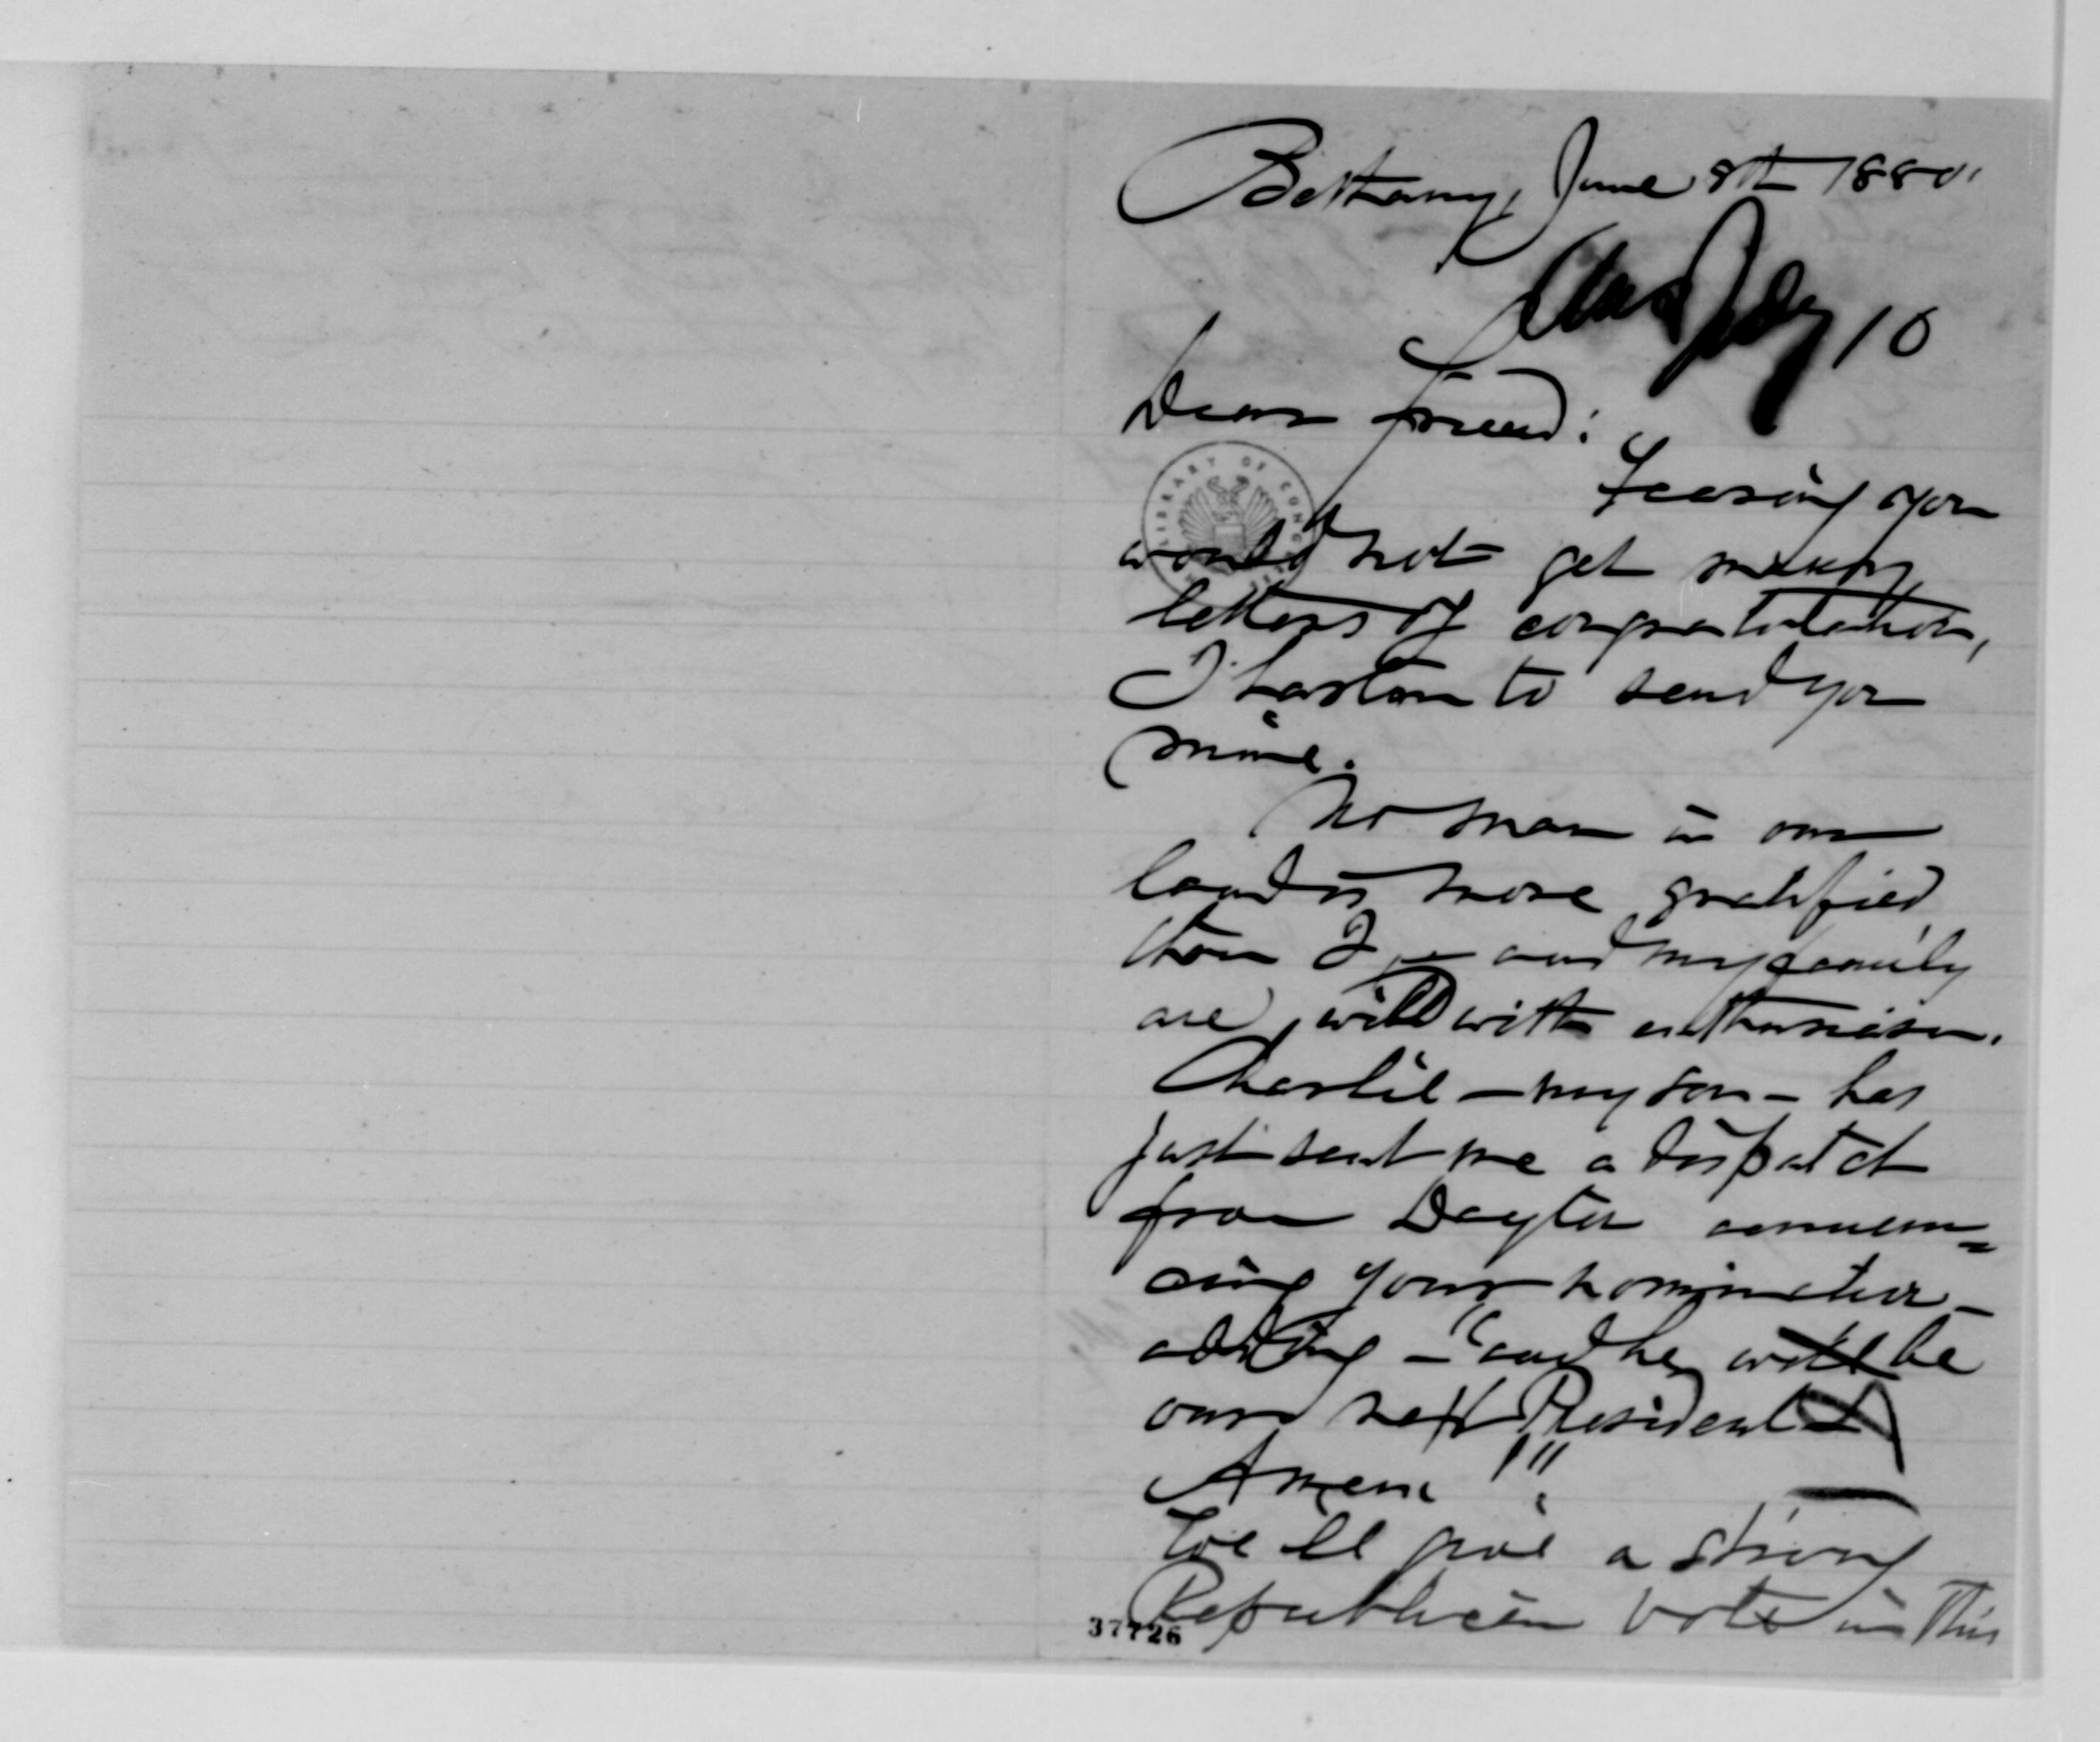 Bethany, June 8th 1880.
Ans July 10
Dear friend:
Fearing you
would not get many
letters of congratulation,
I hasten to send you
mine.
No man in our
land is more gratified
than I, – and my family
are wild with enthusiasm.
Charlie – my son – has
just sent me a dispatch
from Dayton announ=
cing your nomination –
adding – "and he will be
our next President"
Amen!!!
We'll give a strong
Republican vote in this
LIBRARY OF CONGRESS
37726